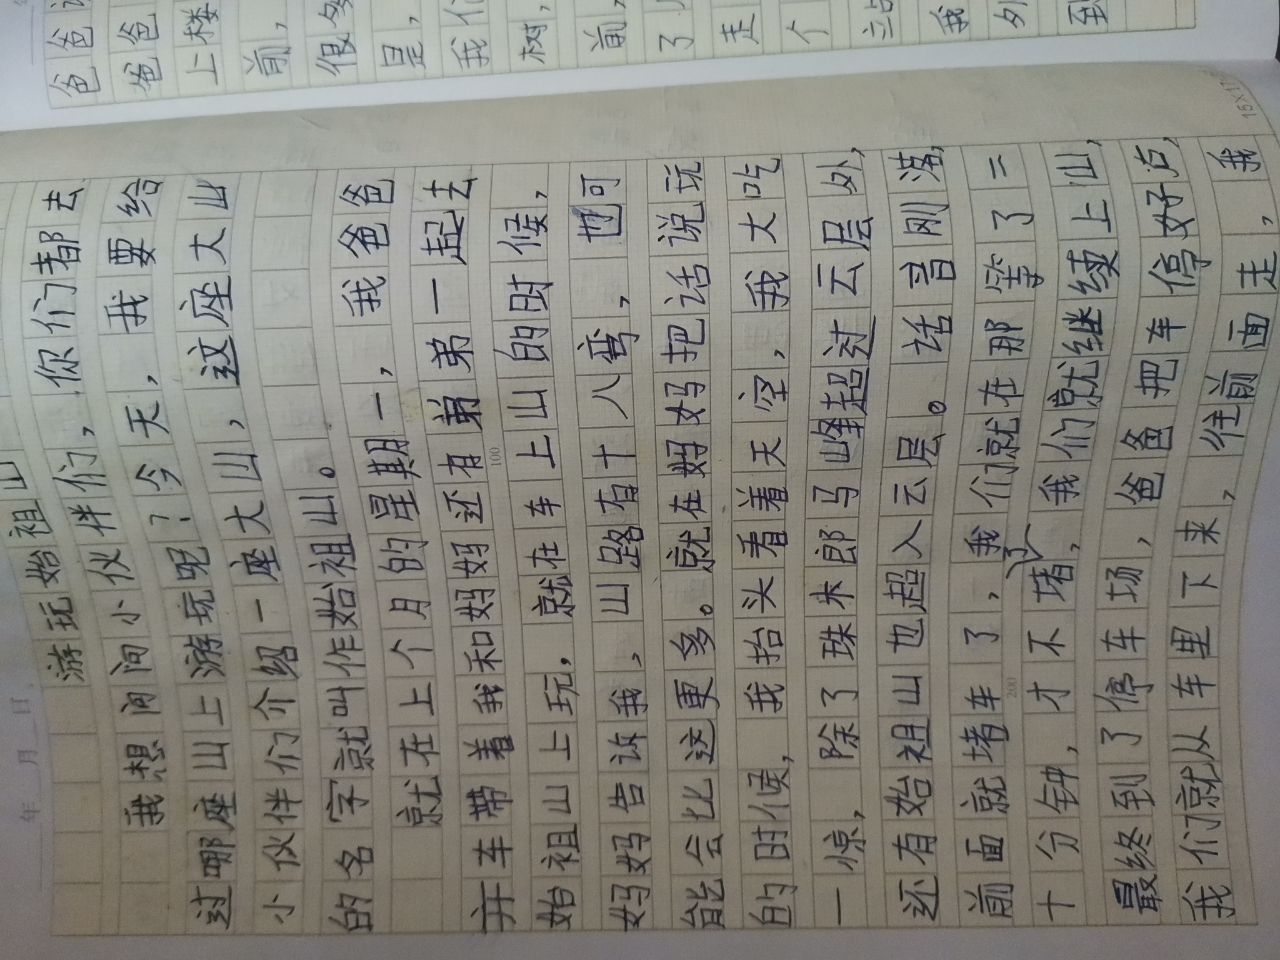 游玩始祖山
我想问问小伙伴们，你们都去
过哪座山上游玩呢？今天，我要给
小伙伴们介绍一座大山，这座大山
的名字就叫作始祖山。
就在上个月的星期一，我爸爸
开车带着我和妈妈还有弟弟一起去
始祖山上玩，就在车上山的时候，
妈妈告诉我，山路有十八弯，也可
能会比这更多。就在妈妈把话说玩
的时候，我抬头看着天空，我大吃
一惊，除了珠木郎马峰超过云层外，
还有始祖山也超入云层。话音刚落，
前面就堵车了，我们就在那等了二
十分钟，才不堵，我们就继续上山，
最终到了停车场，爸爸把车停好后，
我们就从车里下来，往前面走，我
100
200
年 月 日
爸爸
爸爸
上楼
前，
很多
是，
我们
树，
前，
了
走
个
我
外
到